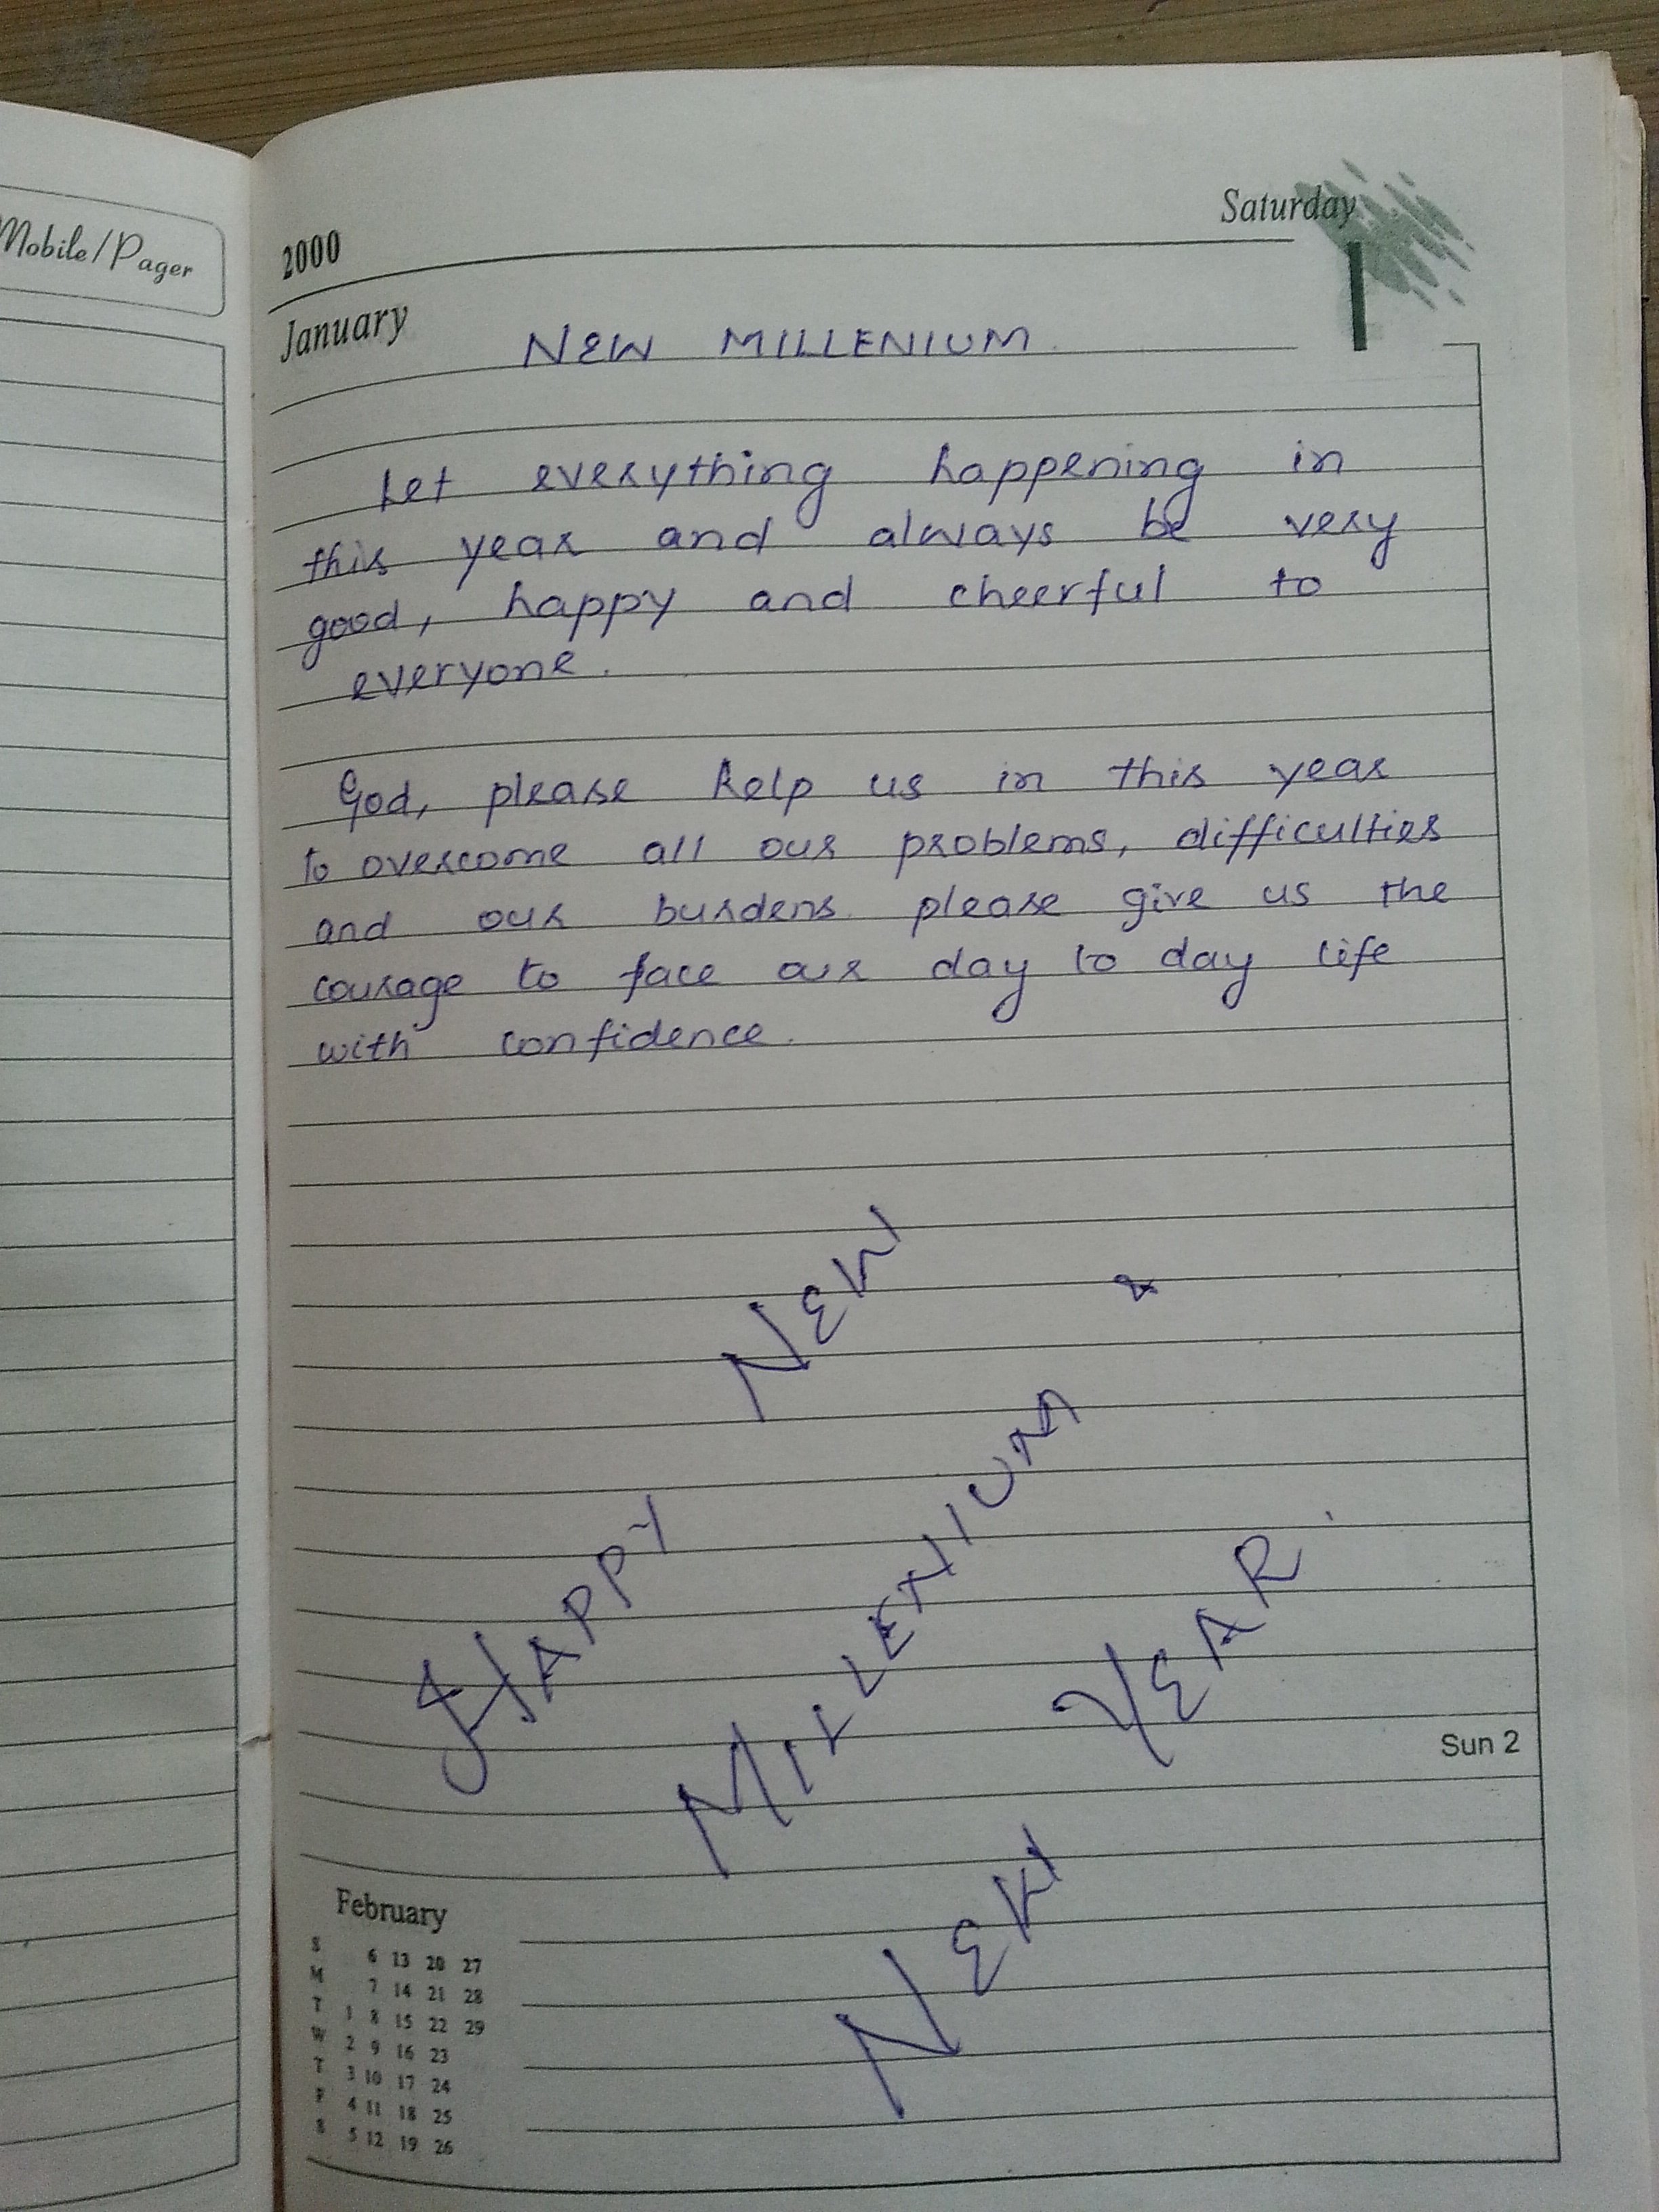 Mobile/Pager
2000
Saturday
1
January
NEW MILLENIUM
Let everything happening in
this year and always be very
good, happy and cheerful to
everyone.
God, please help us in this year
to overcome all our problems, difficulties
and our burdens. please give us the
courage to face our day to day life
with confidence.
HAPPY NEW
MILLENIUM &
NEW YEAR.
Sun 2
February
S 6 13 20 27
M 7 14 21 28
T 1 8 15 22 29
W 2 9 16 23
T 3 10 17 24
F 4 11 18 25
S 5 12 19 26